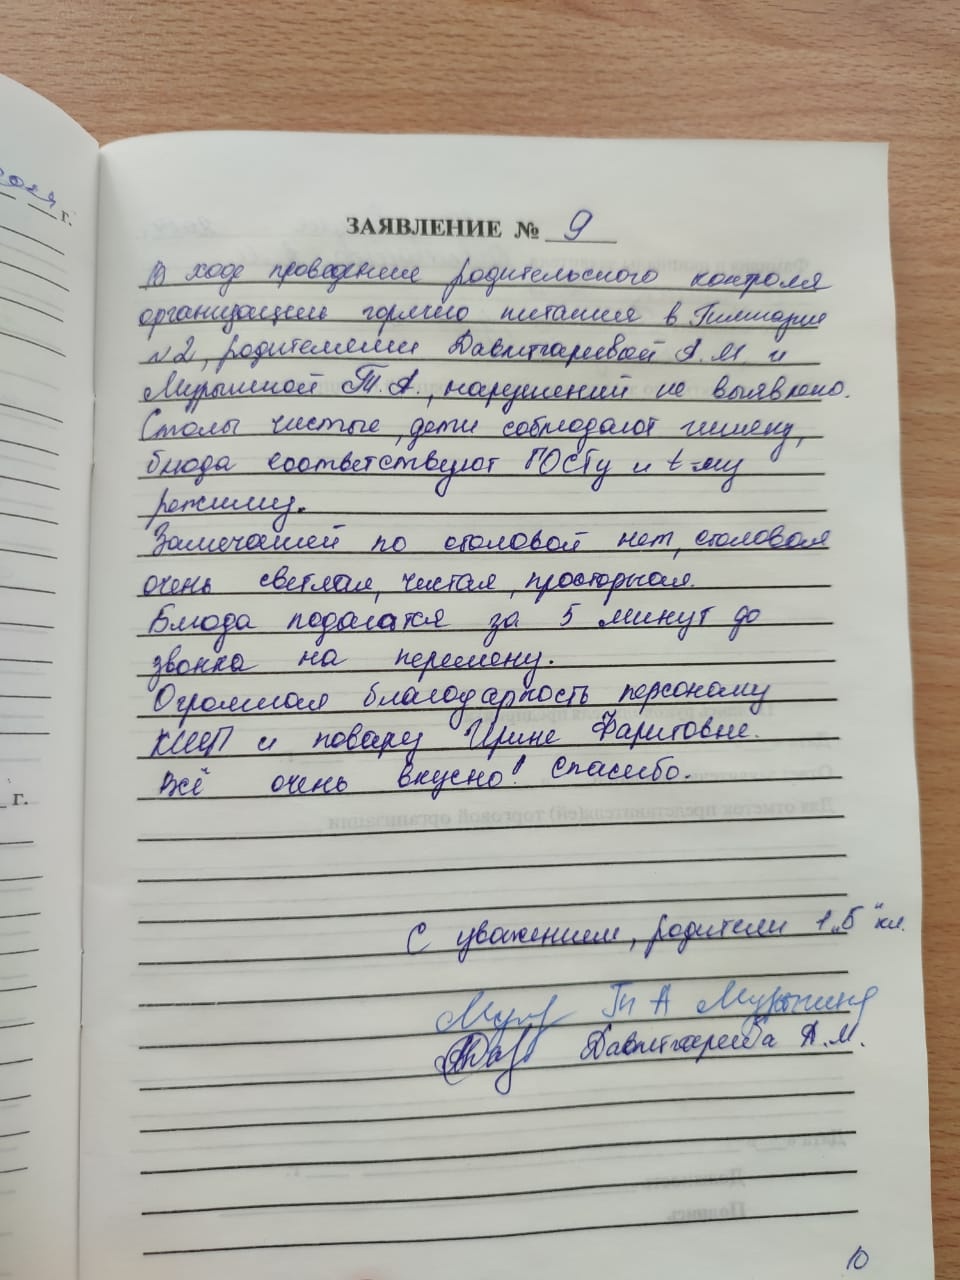 ЗАЯВЛЕНИЕ № 9
В ходе проведение родительского контроля
организации горячего питания в Гимназии
№2, родителями Давлитгареевой А.М. и
Мурышкиной Т.А., нарушений не выявлено.
Столы чистые, дети соблюдают гигиену,
блюда соответствуют ГОСТу и t-му
режиму.
Замечаний по столовой нет, столовая
очень светлая, чистая, просторная.
Блюда подаются за 5 минут до
звонка на перемену.
Огромная благодарность персоналу
КШП и повару Ирине Фаритовне.
Всё очень вкусно! Спасибо.
С уважением, родители 1 „Б" кл.
Т А
Давлитгареева А.М.
10
г.
г.